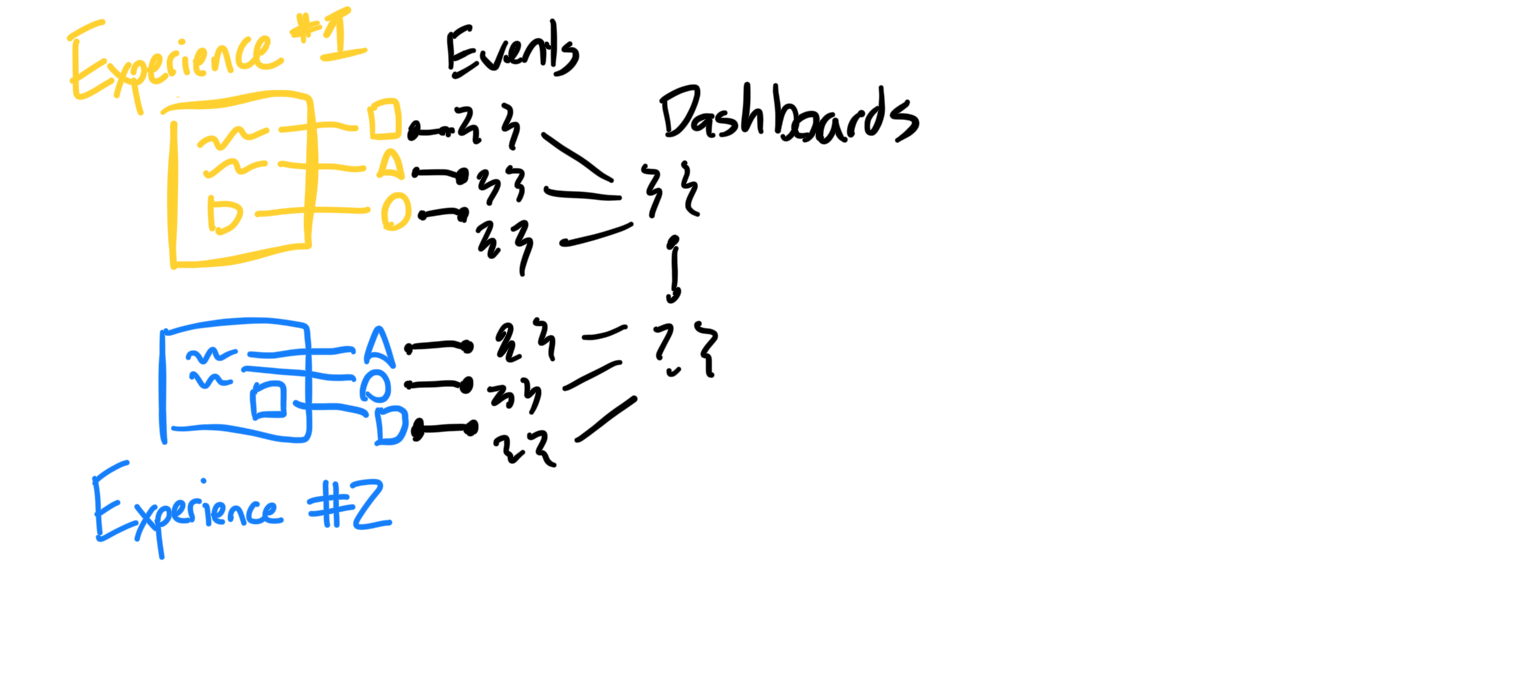 Experience #1
Events
Dashboards
Experience #2